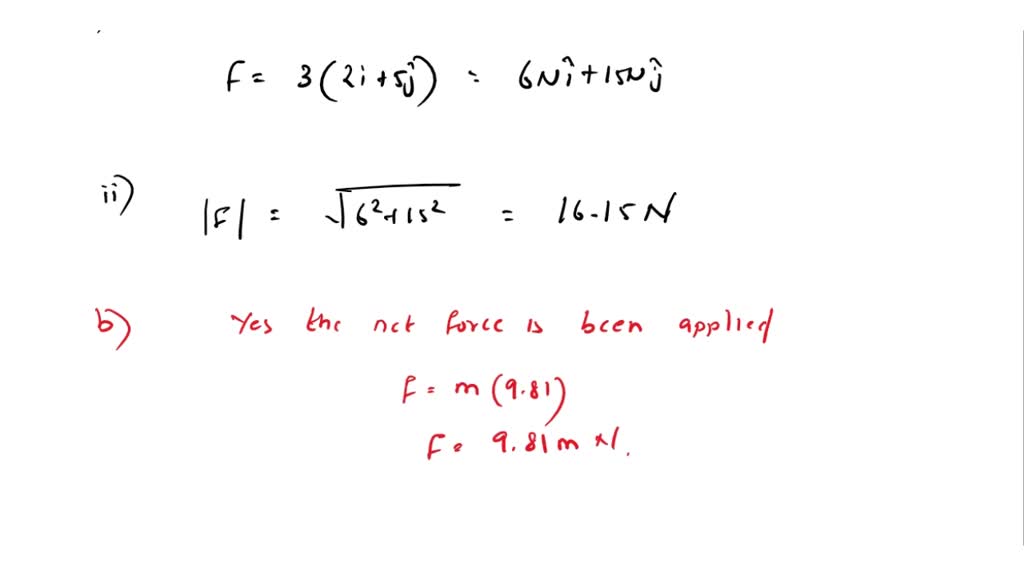 F = 3(2i + 5ĵ) = 6Nî + 15Nĵ
ii) |F| = √6²+15² = 16.15 N
b) Yes the net force is been applied
F = m (9.81)
F = 9.81m N.